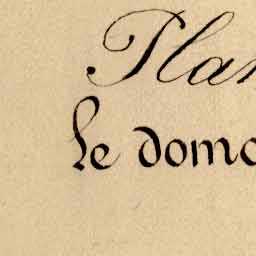 Plan
le doma